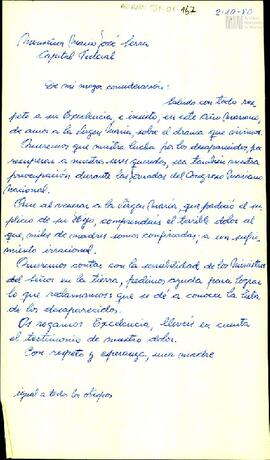 2-10-80
Monseñor Mario José Serra
Capital Federal
De mi mayor consideración:
Saludo con todo res-
peto a su Excelencia, e insisto, en este Año Mariano,
de amor a la Virgen María, sobre el drama que vivimos.
Queremos que nuestra lucha por los desaparecidos, por
recuperar a nuestros seres queridos, sea también vuestra
preocupación durante las jornadas del Congreso Mariano
Nacional.
Que al venerar a la Virgen María, que padeció el su-
plicio de su Hijo, comprendais el terrible dolor al
que, miles de madres somos confinadas, a un sufri-
miento irracional.
Queremos contar con la sensibilidad de los Ministros
del Señor en la tierra, pedimos ayuda para lograr
lo que reclamamos: que se dé a conocer la lista
de los desaparecidos.
Os rogamos Excelencia, llevéis en cuenta
el testimonio de nuestro dolor.
Con respeto y esperanza, una madre
igual a todos los obispos